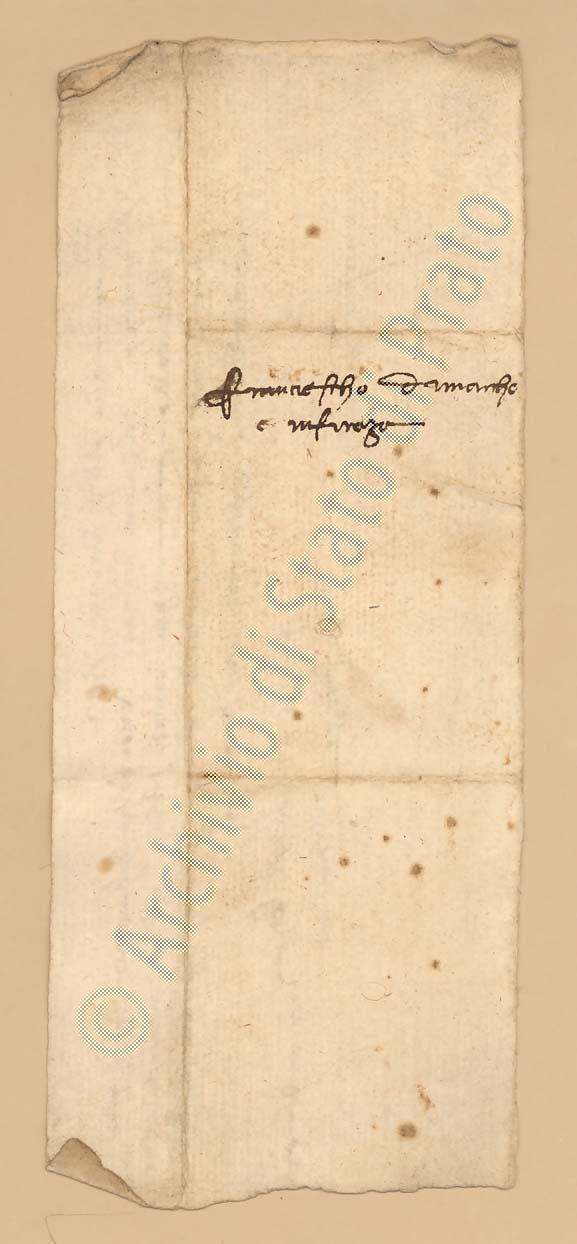 Franciescho Damarcho
e in firenze
© Archivio di Stato di Prato